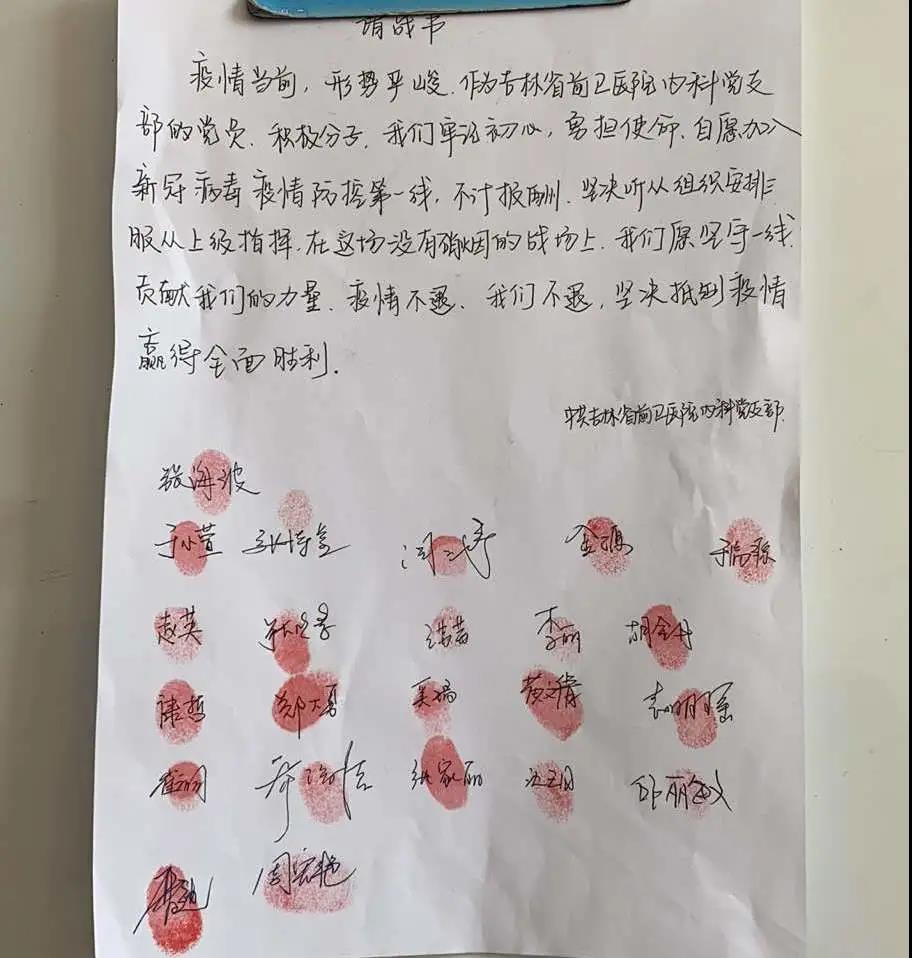 请战书
疫情当前，形势严峻.作为吉林省前卫医院内科党支
部的党员、积极分子、我们牢记初心，勇担使命、自愿加入
新冠病毒疫情防控第一线，不计报酬、坚决听从组织安排、
服从上级指挥.在这场没有硝烟的战场上、我们愿坚守一线、
贡献我们的力量、疫情不退、我们不退，坚决抵制疫情
赢得全面胜利.
中共吉林省前卫医院内科党支部.
张海波
于小萱
赵英 李丽
唐哲 郑大勇 吴瑞
张家丽 邱丽敏
周宏艳